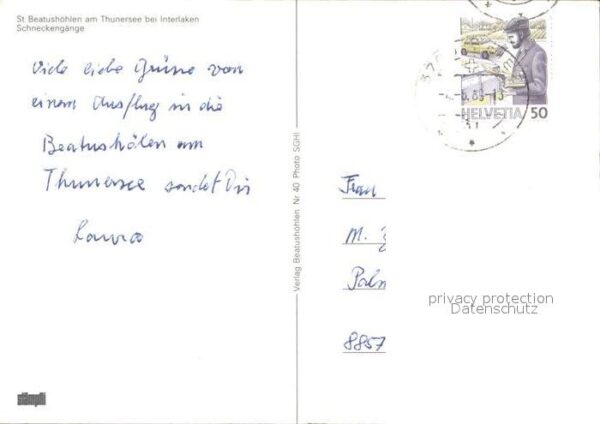 St Beatushöhlen am Thunersee bei Interlaken
Schneckengänge
Viele liebe Grüsse von
einem Ausflug in die
Beatushölen am
Thunersee sendet Dir
Laura
Verlag Beatushöhlen Nr 40 Photo SGHI
HELVETIA 50
Frau
M.
Palm
8857
privacy protection
Datenschutz
stämpfli